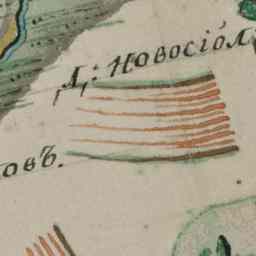 Д: Новосіол
овъ.